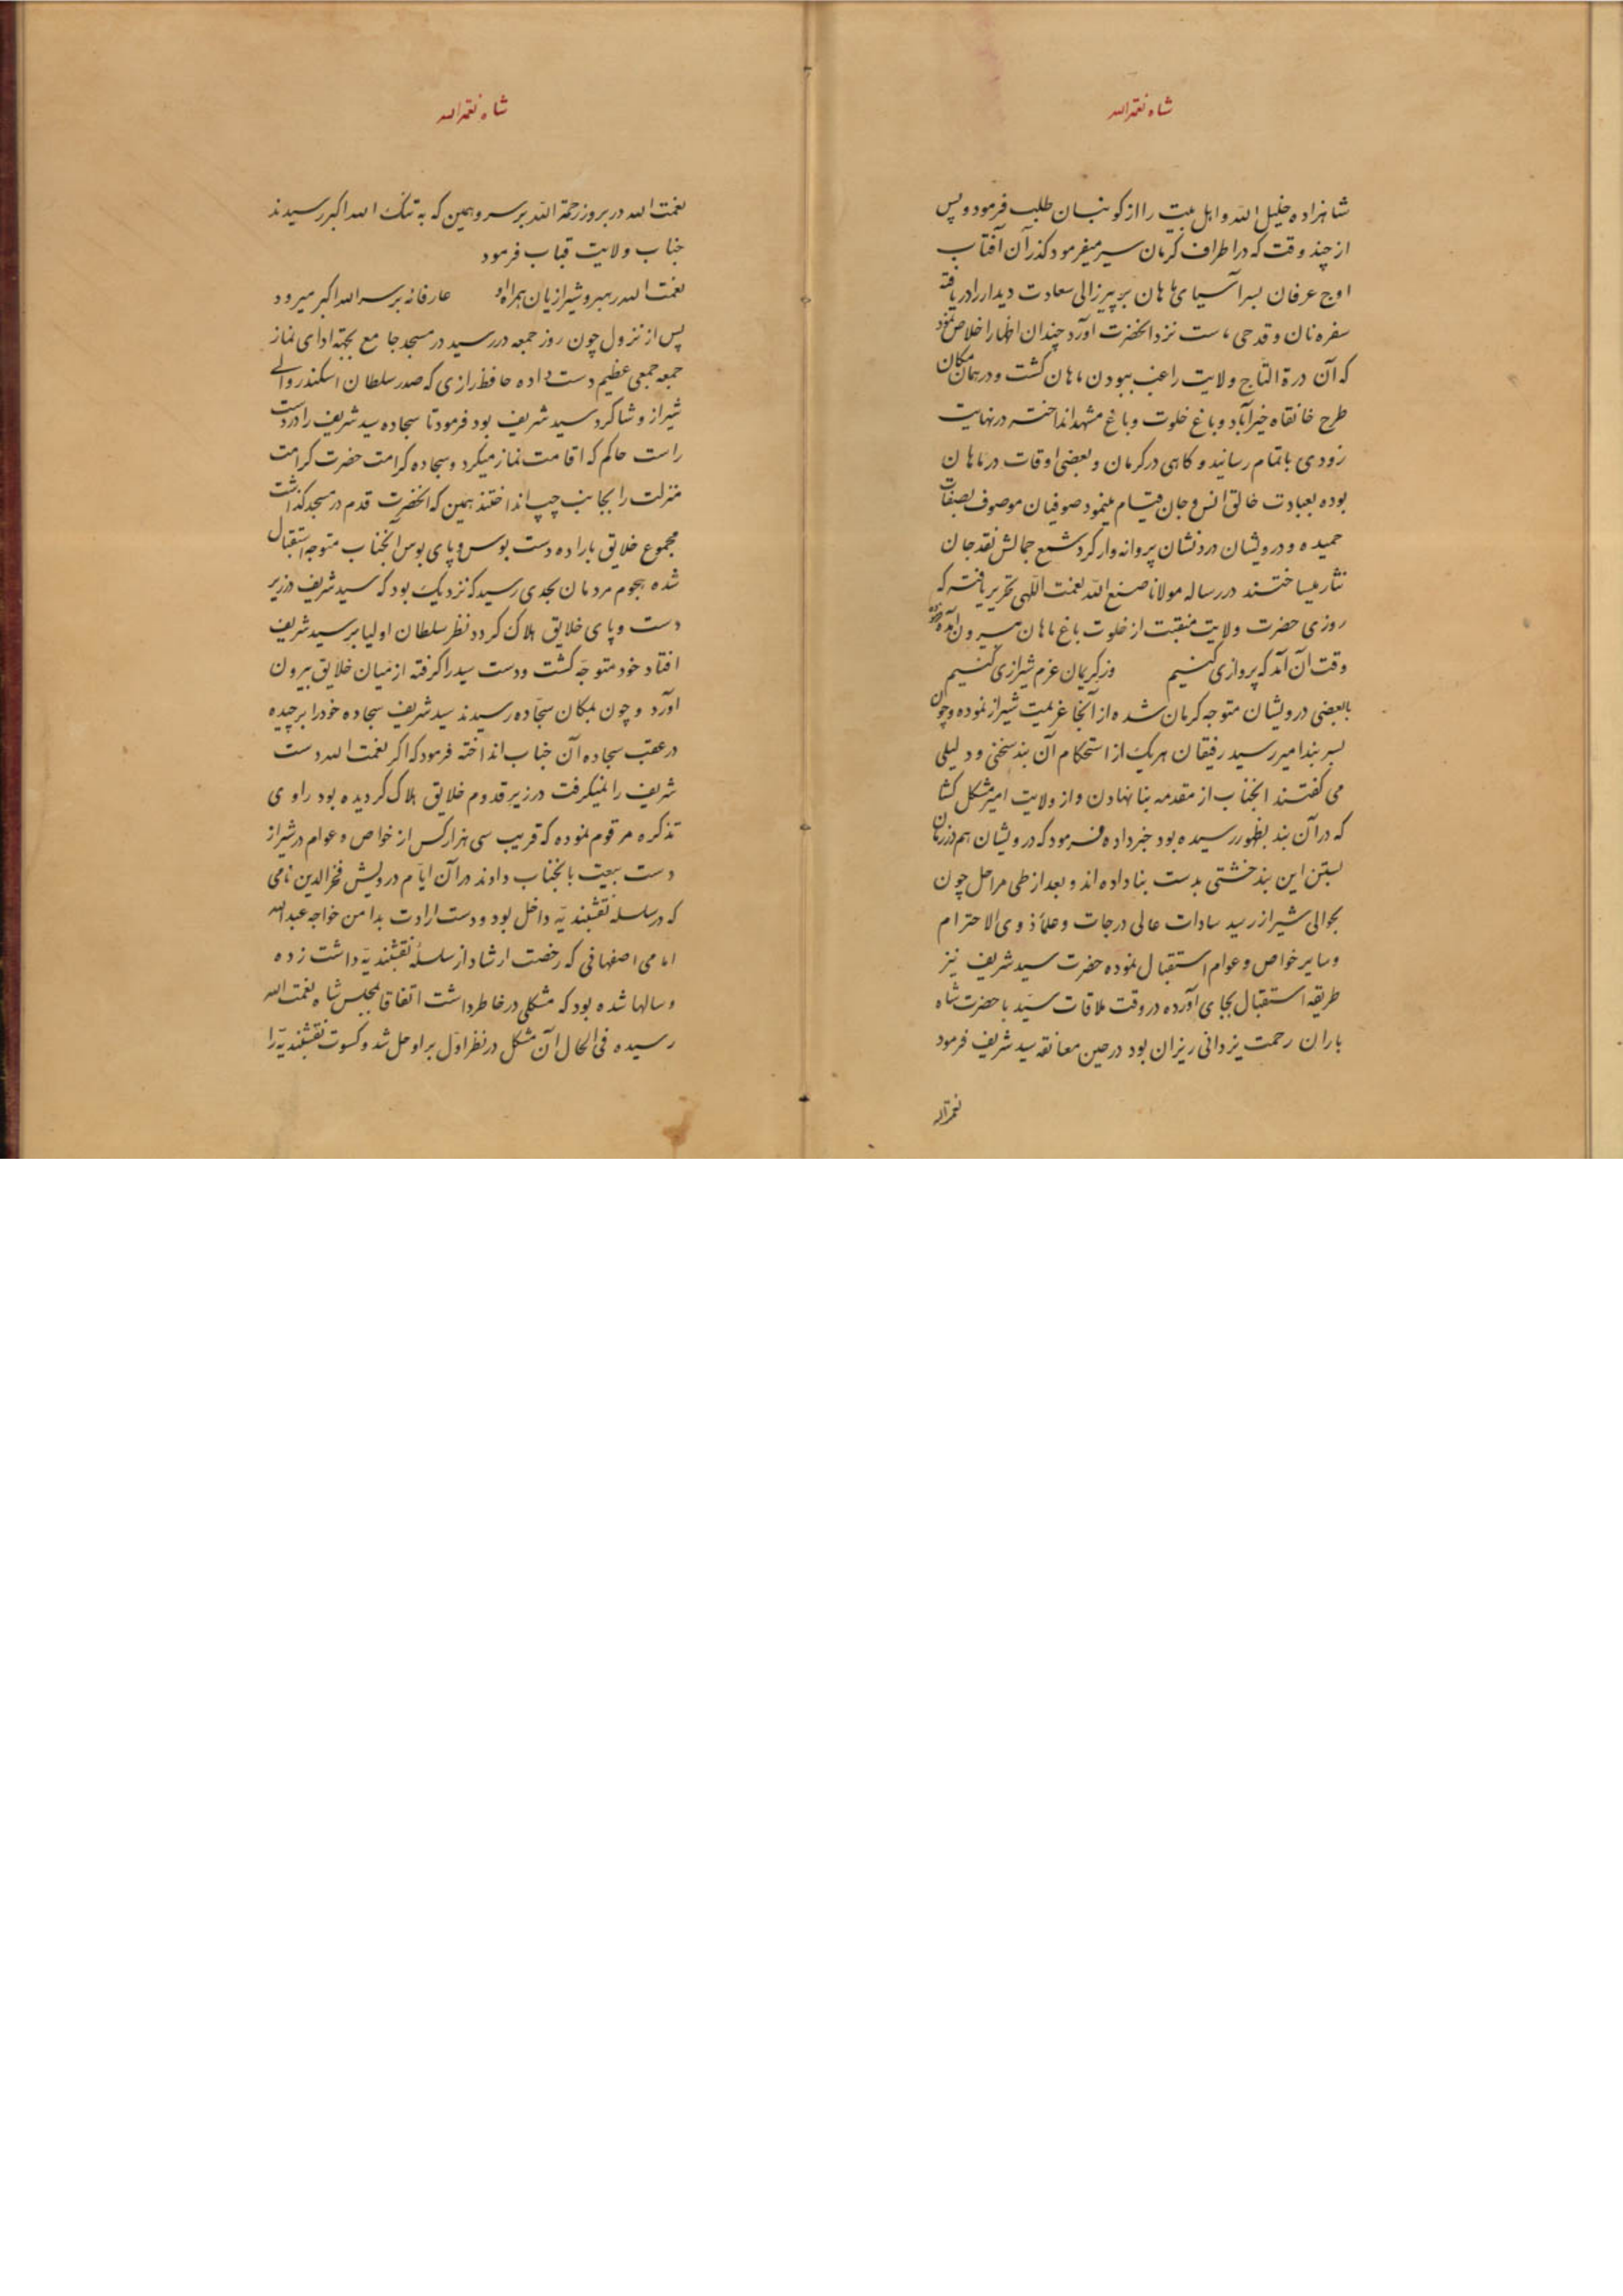 شاه نعمة الله
شاهزاده خلیل الله و اهل بیت را از کوبنان طلب فرمود و پس
از چند وقت که در اطراف کرمان سیر میفرمود کذر آن آفتاب
اوج عرفان بسر آسیای ماهان بر پیرزالی سعادت دیدار را دریافته
سفره نان و قدحی ماست نزد انحضرت اورد چندان اظهار اخلاص نمود
که آن درة التاج ولایت راغب ببودن ماهان کشت و در همان مکان
طرح خانقاه خیرآباد و باغ خلوت و باغ مشهد انداخته در نهایت
زودی باتمام رسانید و کاهی در کرمان و بعضی اوقات در ماهان
بوده بعبادت خالق انس و جان قیام مینمود صوفیان موصوف بصفات
حمیده و درویشان درد نشان پروانه وار کرد شمع جمالش نقد جان
نثار میساختند در رساله مولانا صنع الله نعمت اللهی تحریر یافته که
روزی حضرت ولایت منقبت از خلوت باغ ماهان بیرون آمده
وقت آن آمد که پروازی کنیم وز کریمان عزم شیرازی کنیم
بابعضی درویشان متوجه کرمان شده از آنجا عزیمت شیراز نموده و چون
بسر بند امیر رسید رفیقان هریک از استحکام آن بند سخنی و دلیلی
می کفتند انجناب از مقدمه بنا نهادن و از ولایت امیر مشکل کشا
که در آن بند بظهور رسیده بود خبر داده فرمود که درویشان هم در زمان
بستن این بند خشتی بدست بنا داده اند و بعد از طی مراحل چون
بحوالی شیراز رسید سادات عالی درجات و علماء ذوی الاحترام
و سایر خواص و عوام استقبال نموده حضرت سید شریف نیز
طریقه استقبال بجای آورده در وقت ملاقات سید با حضرت شاه
باران رحمت یزدانی ریزان بود در حین معانقه سید شریف فرمود
نعمت الله
شاه نعمة الله
نعمت الله در بر و زرحمة الله بر سر و همین که به تنک الله اکبر رسیدند
جناب ولایت قباب فرمود
نعمت الله رهبر و شیرازیان همراه او عارفانه بر سر الله اکبر میرود
پس از نزول چون روز جمعه در رسید در مسجد جامع بجهة ادای نماز
جمعه جمعی عظیم دست داده حافظ رازی که صدر سلطان اسکندر والی
شیراز و شاکرد سید شریف بود فرمود تا سجاده سید شریف را در دست
راست حاکم که اقامت نماز میکرد و سجاده کرامت حضرت کرامت
منزلت را بجانب چپ انداختند همین که انحضرت قدم در مسجد کذاشت
مجموع خلایق باراده دست بوس و پای بوس آنجناب متوجه استقبال
شده هجوم مردمان بحدی رسید که نزدیک بود که سید شریف در زیر
دست و پای خلایق هلاک کردد نظر سلطان اولیا بر سید شریف
افتاد خود متوجه کشت و دست سید را کرفته از میان خلایق بیرون
آورد و چون بمکان سجاده رسیدند سید شریف سجاده خود را برچیده
در عقب سجاده آن جناب انداخته فرمود که اکر نعمت الله دست
شریف را نمیکرفت در زیر قدوم خلایق هلاک کردیده بود راوی
تذکره مرقوم نموده که قریب سی هزار کس از خواص و عوام در شیراز
دست بیعت بانجناب دادند در آن ایام درویش فخرالدین نامی
که در سلسله نقشبندیه داخل بود و دست ارادت بدامن خواجه عبدالله
امامی اصفهانی که رخصت ارشاد از سلسله نقشبندیه داشت زده
و سالها شده بود که مشکلی در خاطر داشت اتفاقا بمجلس شاه نعمت الله
رسیده فی الحال آن مشکل در نظر اول بر او حل شد و کسوت نقشبندیه را